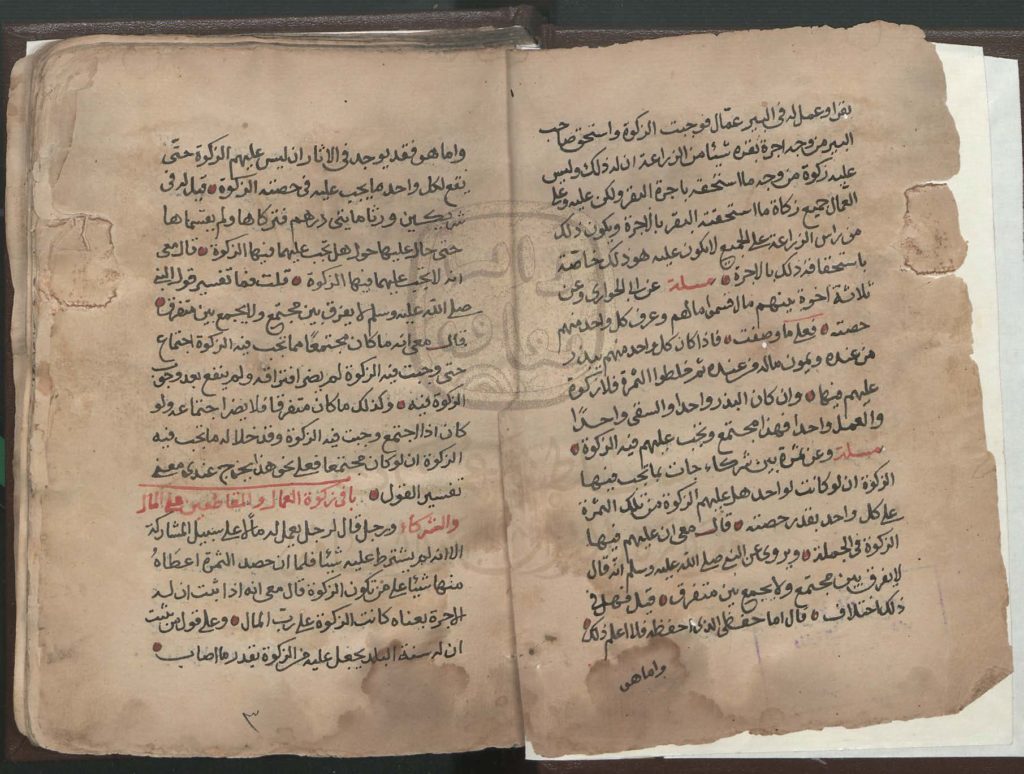 بقرا وعمل له في البير عمال فوجبت الزكوة واستحق صاحب
البير من وجه اجرة بقره شيئا من الزراعة ان له ذلك وليس
عليه زكوة من وجه ما استحقه باجرة البقر ولكن عليه وعلى
العمال جميع زكاة ما استحقته البقر بالاجرة ويكون ذلك
من راس الزراعة على الجميع لا يكون عليه هو ذلك خاصة
باستحقاقه ذلك بالاجرة مسئلة عن ابي الحواري وعن
ثلاثة اخوة بينهم مال قسموا مالهم وعرف كل واحد منهم
حصته فعلى ما وصفت فاذا كان كل واحد منهم يبذر
من عنده ويمون ماله من عنده ثم خلطوا الثمرة فلا زكوة
عليهم فيها وان كان البذر واحدا والسقى واحدا
والعمل واحدا فهذا مجتمع وتجب عليهم فيه الزكوة
مسئلة وعن ثمرة بين شركاء جات ما يجب فيها
الزكوة ان لو كانت لواحد هل عليهم الزكوة من تلك الثمرة
على كل واحد بقدر حصته قال معي ان عليهم فيها
الزكوة في الجملة ويروى عن النبي صلى الله عليه وسلم انه قال
لا يفرق بين مجتمع ولا يجمع بين متفرق قيل فهل في
ذلك اختلاف قال اما حفظي الذي احفظه فلا اعلم ذلك
واما هي
واما هو فقد يوجد في الاثار ان ليس عليهم الزكوة حتى
يقع لكل واحد ما يجب عليه في حصته الزكوة قيل له في
شريكين ورثا مايتي درهم فتركاها ولم يقسماها
حتى حال عليها حول هل تجب عليهما فيها الزكوة قال معي
انه لا يجب عليهما فيها الزكوة قلت فما تفسير قول النبي
صلى الله عليه وسلم لا يفرق بين مجتمع ولا يجمع بين متفرق
قال معي انه ما كان مجتمعا مما تجب فيه الزكوة اجتماع
حتى وجبت فيه الزكوة لم يضر افتراقه ولم ينفع بعد وجوب
الزكوة فيه وكذلك ما كان متفرقا فلا يضر اجتماعه ولو
كان اذا اجتمع وجبت فيه الزكوة وقد خلا له ما تجب فيه
الزكوة ان لو كان مجتمعا فعلى نحو هذا يخرج عندي معنى
تفسير القول باب في زكوة العمال والمقاطعين في المال
والشركاء ورجل قال لرجل يعمل له مالا على سبيل المشاركة
الا انه لم يشترط عليه شيئا فلما ان حصد الثمرة اعطاه
منها شيئا على من تكون الزكوة قال معي انه اذا ثبت ان له
الاجرة بعناه كانت الزكوة على رب المال وعلى قول من يثبت
ان له سنة البلد يجعل عليه من الزكوة بقدر ما اصاب
٣